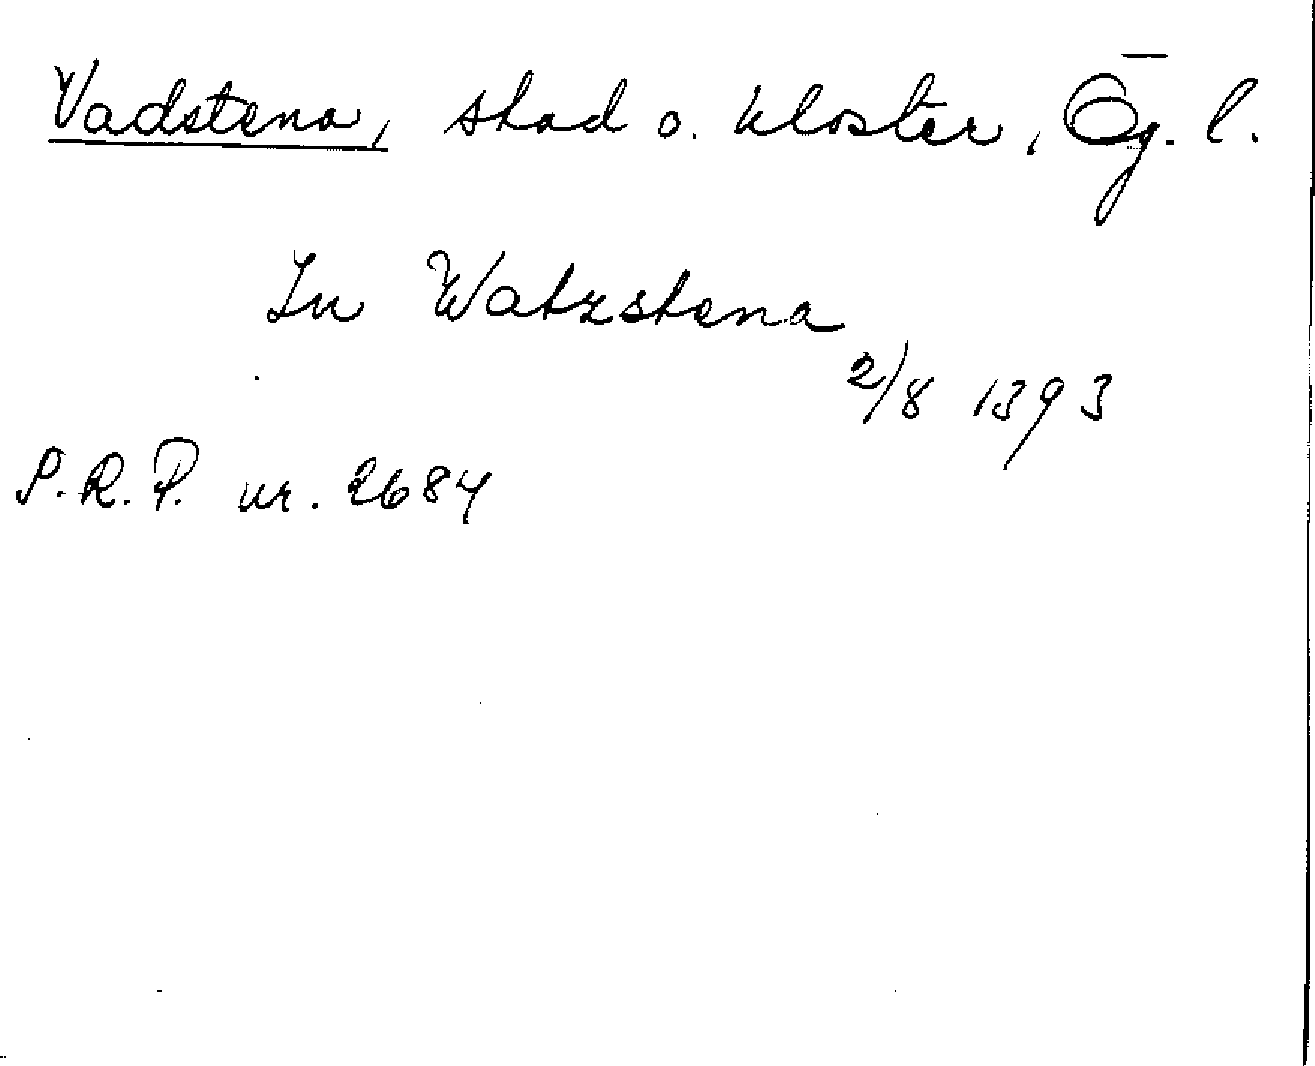 Vadstena, stad o. kloster, Ög. l.
In Watzstena
2/8 1393
S.R.P. nr. 2684